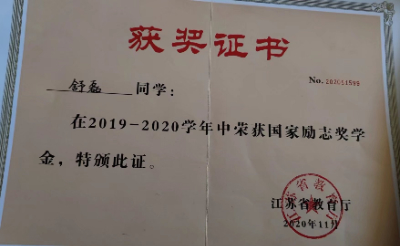 获奖证书
No.
舒磊 同学:
在2019-2020学年中荣获国家励志奖学
金,特颁此证。
江苏省教育厅
2020年11月